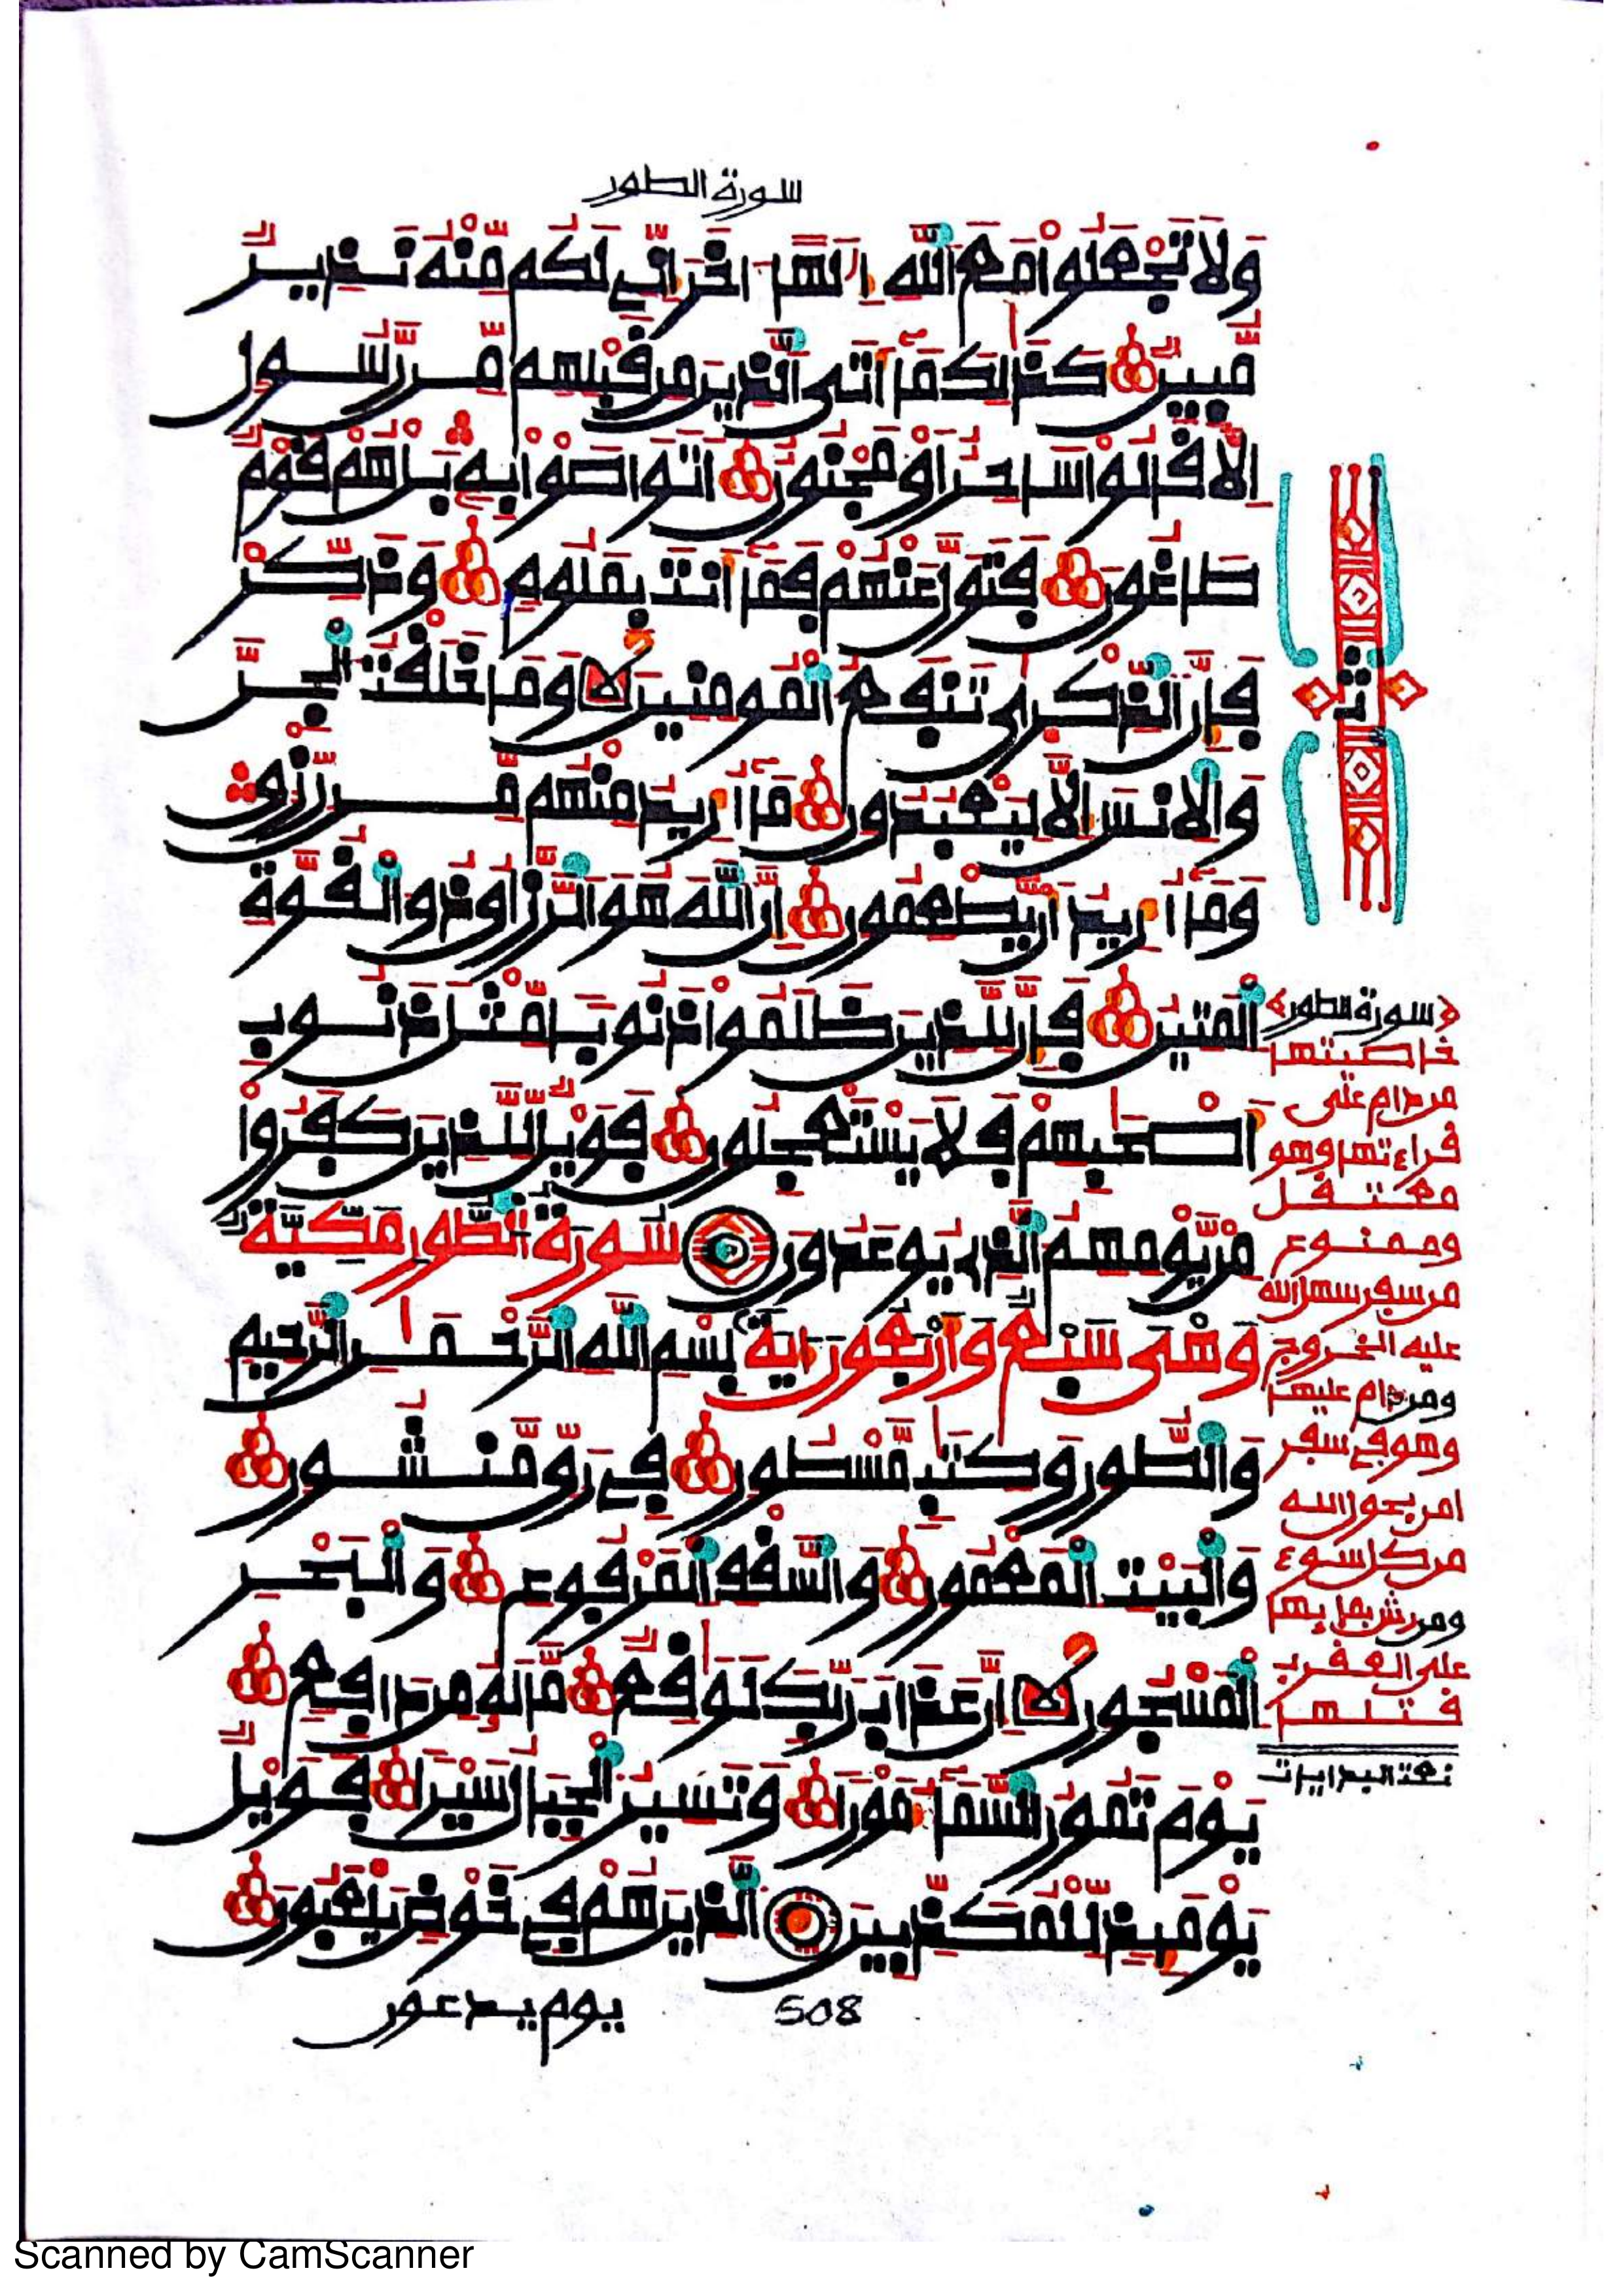 سورة الطور
وَلَا تَجْعَلُوا مَعَ اللَّهِ إِلَٰهًا اخَرَ إِنِّي لَكُم مِّنْهُ نَذِيرٌ
مُّبِينٌ كَذَٰلِكَ مَا أَتَى الَّذِينَ مِن قَبْلِهِم مِّن رَّسُولٍ
إِلَّا قَالُوا سَاحِرٌ أَوْ مَجْنُونٌ أَتَوَاصَوْا بِهِ بَلْ هُمْ قَوْمٌ
طَاغُونَ فَتَوَلَّ عَنْهُمْ فَمَا أَنتَ بِمَلُومٍ وَذَكِّرْ
فَإِنَّ الذِّكْرَىٰ تَنفَعُ الْمُومِنِينَ وَمَا خَلَقْتُ الْجِنَّ
وَالْإِنسَ إِلَّا لِيَعْبُدُونِ مَا أُرِيدُ مِنْهُم مِّن رِّزْقٍ
وَمَا أُرِيدُ أَن يُطْعِمُونِ إِنَّ اللَّهَ هُوَ الرَّزَّاقُ ذُو الْقُوَّةِ
الْمَتِينُ فَإِنَّ لِلَّذِينَ ظَلَمُوا ذَنُوبًا مِّثْلَ ذَنُوبِ
أَصْحَٰبِهِمْ فَلَا يَسْتَعْجِلُونِ فَوَيْلٌ لِّلَّذِينَ كَفَرُوا
مِنْ يَّوْمِهِمُ الَّذِي يُوعَدُونَ سُورَةُ الطُّورِ مَكِّيَّةٌ
وَهْيَ سَبْعٌ وَأَرْبَعُونَ ايَةً بِسْمِ اللَّهِ الرَّحْمَٰنِ الرَّحِيمِ
وَالطُّورِ وَكِتَٰبٍ مَّسْطُورٍ فِي رَقٍّ مَّنشُورٍ
وَالْبَيْتِ الْمَعْمُورِ وَالسَّقْفِ الْمَرْفُوعِ وَالْبَحْرِ
الْمَسْجُورِ إِنَّ عَذَابَ رَبِّكَ لَوَٰقِعٌ مَّا لَهُ مِن دَافِعٍ
يَوْمَ تَمُورُ السَّمَاءُ مَوْرًا وَتَسِيرُ الْجِبَالُ سَيْرًا فَوَيْلٌ
يَوْمَئِذٍ لِّلْمُكَذِّبِينَ الَّذِينَ هُمْ فِي خَوْضٍ يَلْعَبُونَ
يوم يدعون
508
ثمن
﴿سورة الطور﴾
خاصيتها
من دام على
قراءتها وهو
معتقل
وممنوع
من سفر سهل الله
عليه الخروج
ومن دام عليها
وهو في سفر
امن بحول الله
من كل سوء
ومن رش بماء بها
على العقرب
قتلها
Scanned by CamScanner